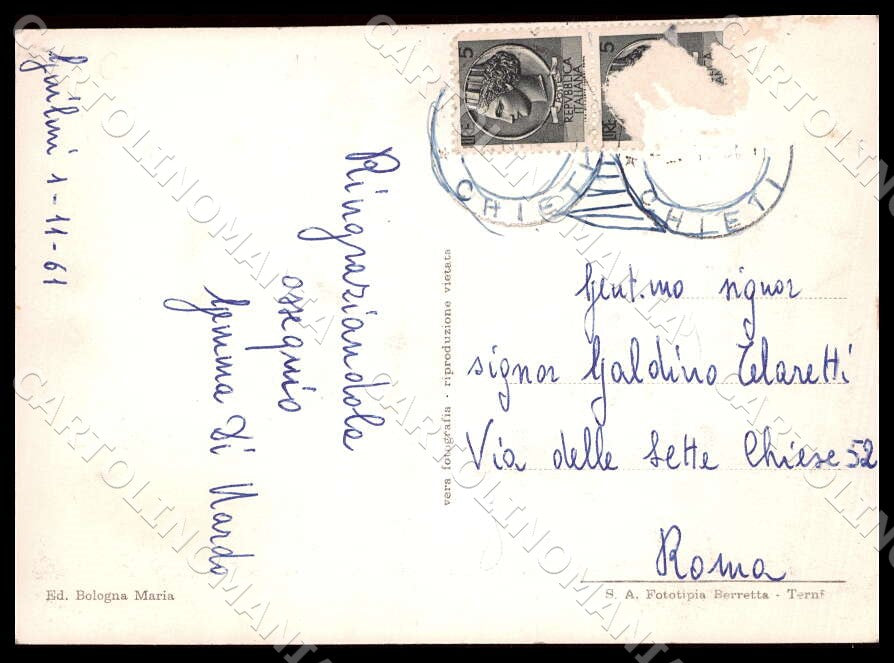 Guilmi 1-11-61
Ringraziandola
ossequio
Gemma Di Nardo
vera fotografia - riproduzione vietata
Ed. Bologna Maria
5
LIRE
REPVBBLICA
ITALIANA
5
LIRE
CHIETI
CHIETI
Gent.mo signor
signor Galdino Telaretti
Via delle Sette Chiese 52
Roma
S. A. Fototipia Berretta - Terni
CARTOLINOMANIA